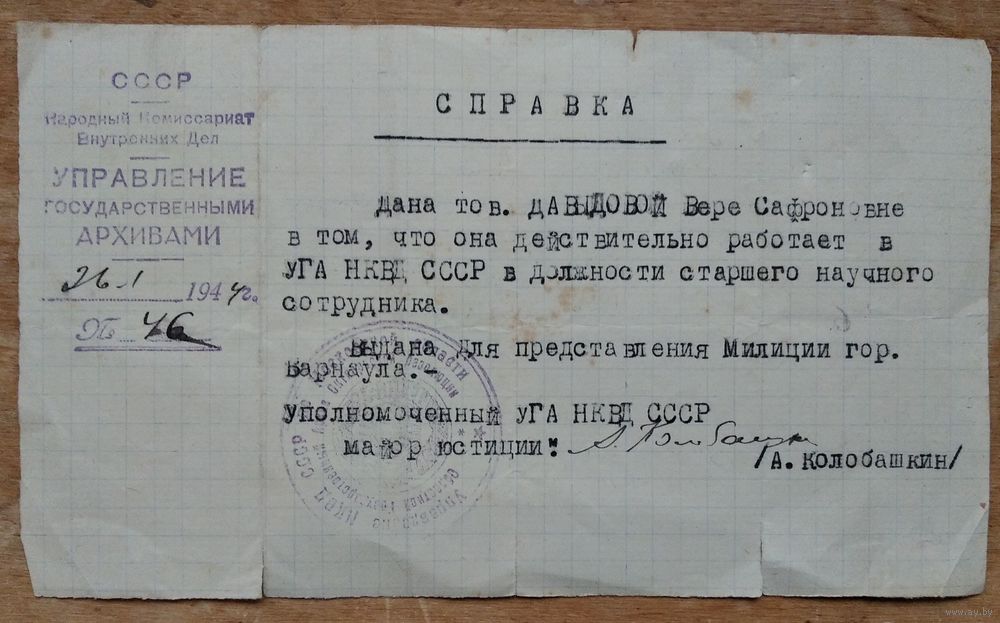 СССР
Народный Комиссариат
Внутренних Дел
УПРАВЛЕНИЕ
ГОСУДАРСТВЕННЫМИ
АРХИВАМИ
26.I 1944г.
№ 46
СПРАВКА
Дана тов. ДАВЫДОВОЙ Вере Сафроновне
в том, что она действительно работает в
УГА НКВД СССР в должности старшего научного
сотрудника.
Выдана для представления Милиции гор.
Барнаула.-
Уполномоченный УГА НКВД СССР
майор юстиции:
/А. КОЛОБАШКИН/
Управление НКВД СССР
Областной
Октябрьской Революции
области
www.ay.by